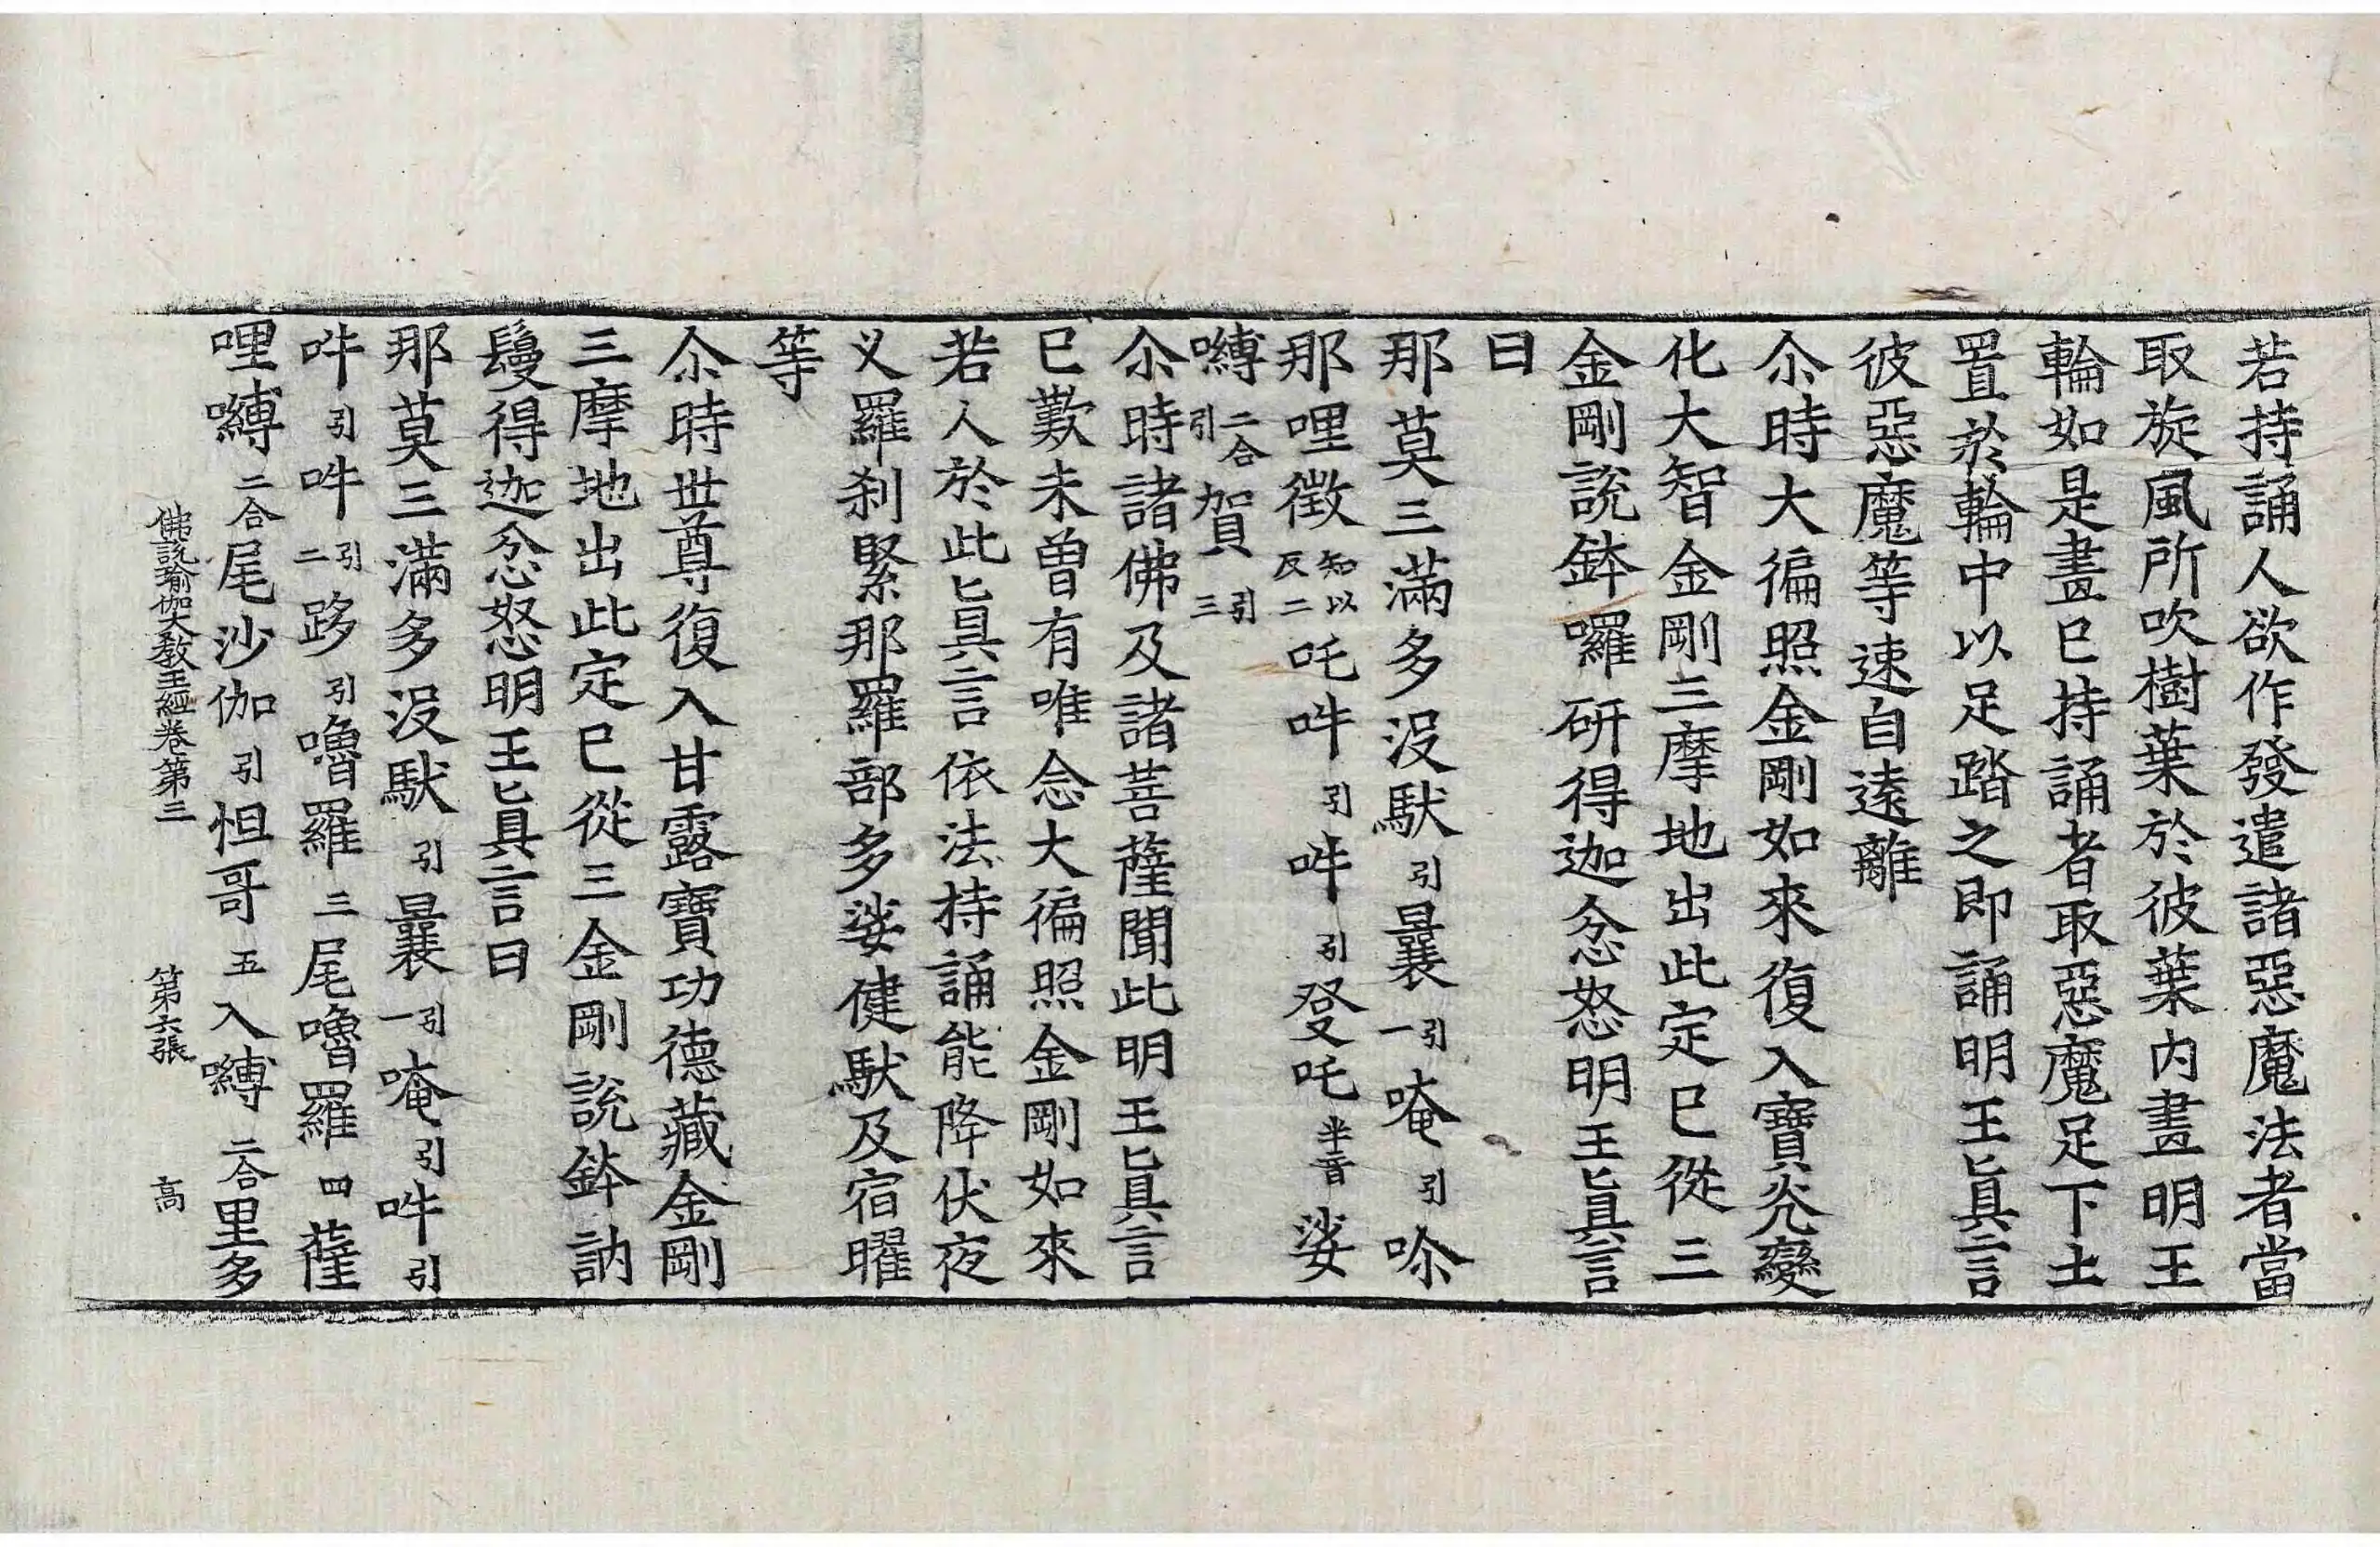 若持誦人欲作發遣諸惡魔法者當
取旋風所吹樹葉於彼葉内畫明王
輪如是畫已持誦者取惡魔足下土
置於輪中以足踏之即誦明王眞言
彼惡魔等速自遠離
尒時大徧照金剛如來復入寶光變
化大智金剛三摩地出此定已從三
金剛說鉢囉研得迦忿怒明王眞言
曰
那莫三滿多没馱引曩引一唵引㖿
那哩徵知以反二吒吽引吽引癹吒半音娑
嚩二合引賀引三
尒時諸佛及諸菩薩聞此明王眞言
已歎未曾有唯念大徧照金剛如來
若人於此眞言依法持誦能降伏夜
义羅刹緊那羅部多娑健馱及宿曜
等
尒時世尊復入甘露寶功德藏金剛
三摩地出此定已從三金剛說鉢訥
鬘得迦忿怒明王眞言曰
那莫三滿多没馱引曩引一唵引吽引
吽引吽引二跢引嚕羅三尾嚕羅四薩
哩嚩二合尾沙伽引怛哥五入嚩二合里多
佛說瑜伽大教王經卷第三 第六張 高